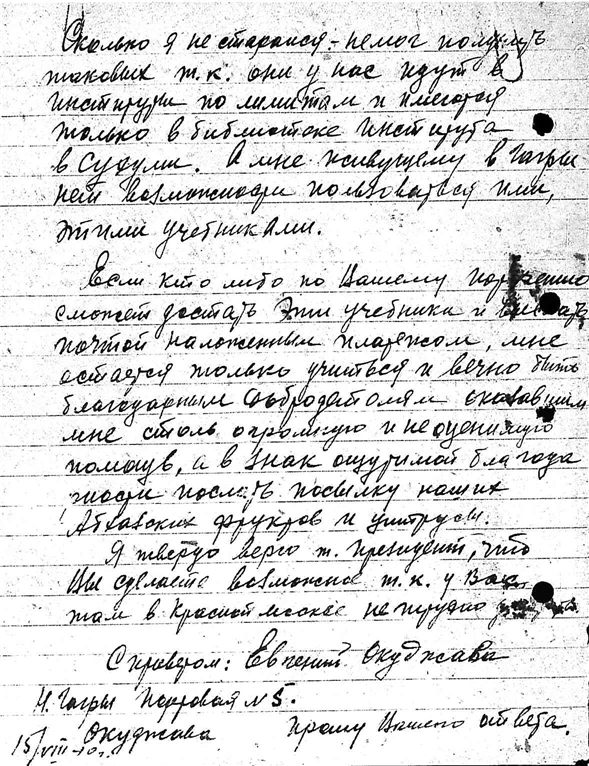 Сколько я не старался - не мог получить
таковых т.к. они у нас идут в
институты по лимитам и имеются
только в библиотеке института
в Сухуми. А мне живущему в Гагры
нет возможности пользоваться ими,
этими учебниками.
Если кто либо по Вашему поручению
сможет достать эти учебники и выслать
почтой наложенным платежом, мне
остается только учиться и вечно быть
благодарным добродетелям оказавшим
мне столь огромную и неоценимую
помощь, а в знак ощутимой благода
рности послать посылку наших
Абхазских фруктов и цитрусы.
Я твердо верю т. Президент, что
Вы сделаете возможное т.к. у Вас
там в Красной москве не трудно
С приветом: Евгений Окуджава
Гагры Портовая №5.
Окуджава Прошу Вашего ответа.
15/VIII